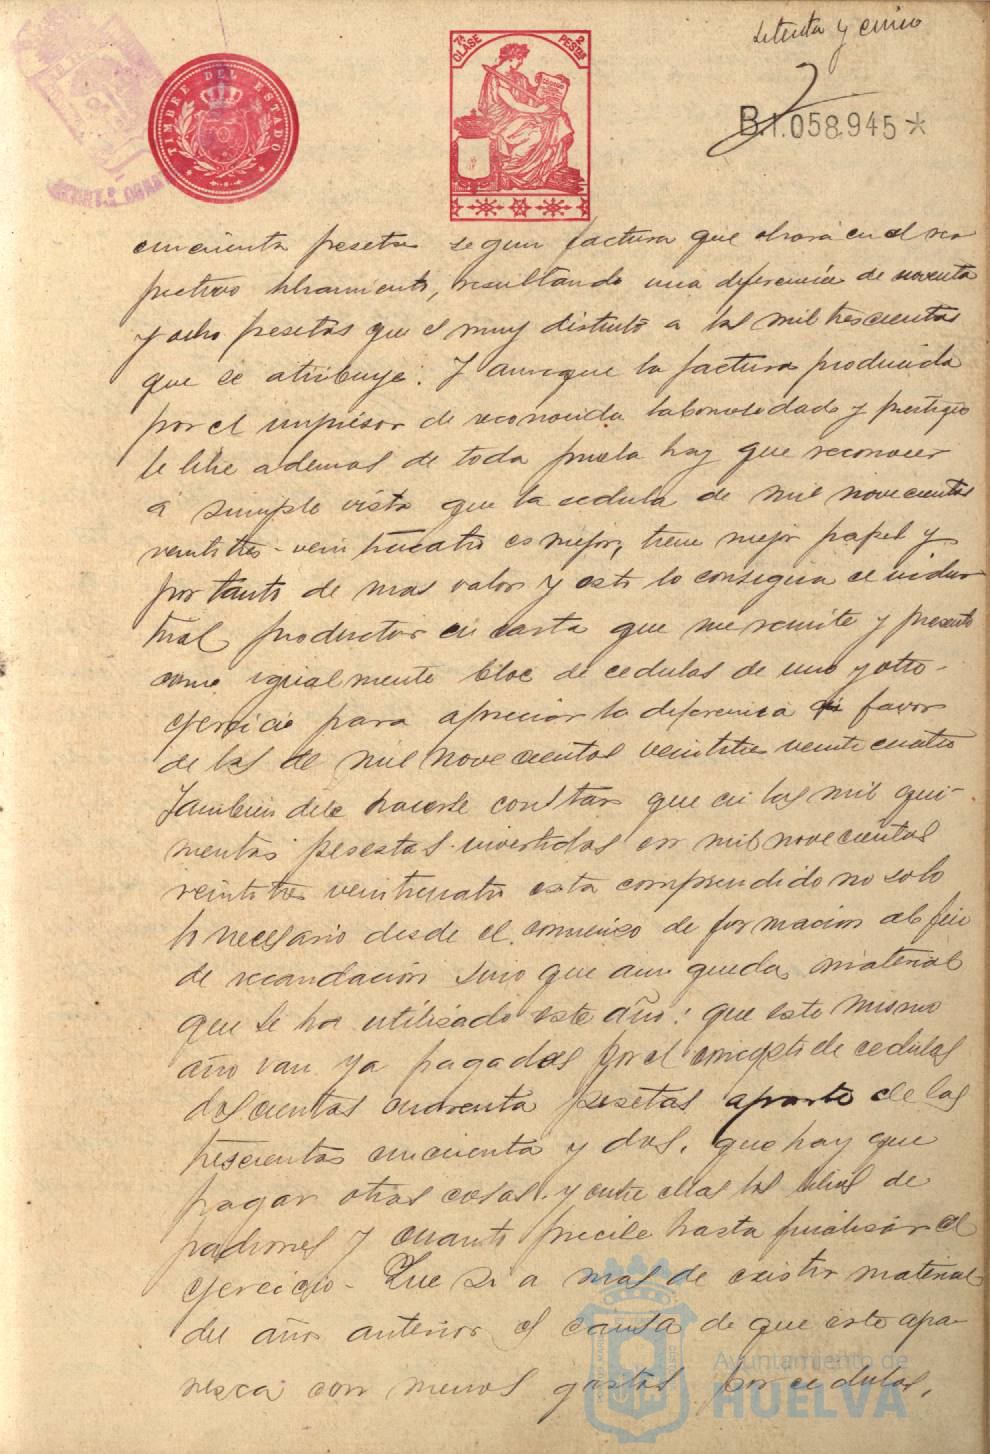 Setenta y cinco
TIMBRE DEL ESTADO
7ª CLASE 2 PESTAS
B.1.058.945*
cincuenta pesetas segun factura que obrará en el res
pectivo libramiento, resultando una diferencia de noventa
y ocho pesetas que es muy distinto a las mil trescientas
que se atribuye. Y aunque la factura producida
por el impresor de reconocida laboriosidad y prestigio
le libre ademas de toda hay que reconocer
á simple vista que la cedula de mil novecientos
veintitres-veinticuatro es mejor, tiene mejor papel y
por tanto de mas valor y esto lo consegia el indus
trial productor en carta que me remite y presento
como igualmente bloc de cedulas de uno y otro-
ejercicio para apreciar la diferencia a favor
de las de mil novecientos veintitres veinticuatro
Tambien debe hacerse constar que en las mil qui-
nientas pesestas invertidas en mil novecientos
veintitres veinticuatro esta comprendido no solo
lo necesario desde el comienzo de formacion al fin
de recaudación sino que aun queda material
que se ha utilizado este año: que este mismo
año van ya pagadas por el concepto de cedulas
doscientas cuarenta pesetas aparte de las
trescientas cincuenta y dos, que hay que
pagar otras cosas y entre ellas los de
padrones y cuanto precise hasta finalisar el
ejercicio- Que si a mas de existir material
del año anterior es causa de que este apa-
resca con menos gastos por cedulas,
Ayuntamiento de
HUELVA